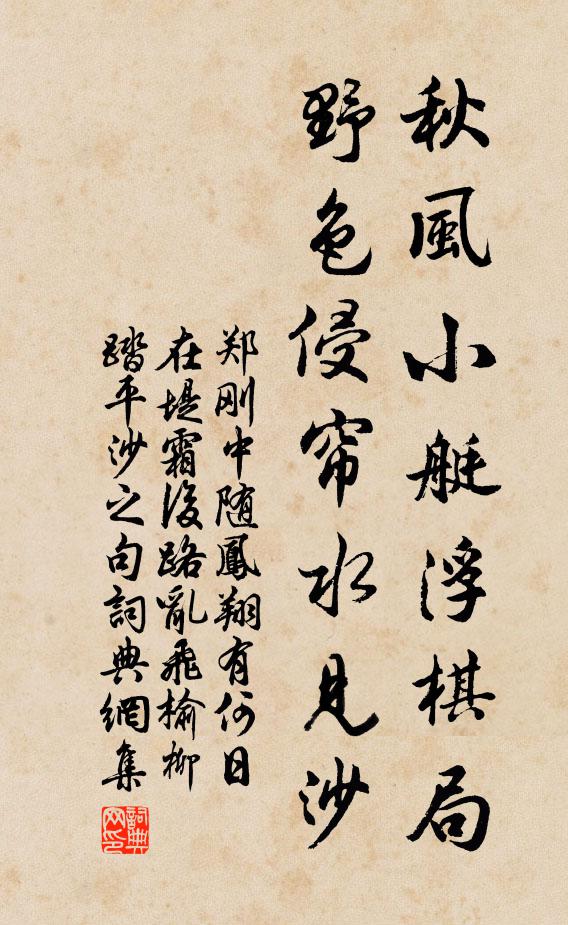 秋風小艇浮棋局
野色侵帘水見沙
郑刚中随鳳翔有何日
在堤霜後路亂飛榆柳
踏平沙之句詞典網集
詞典网印